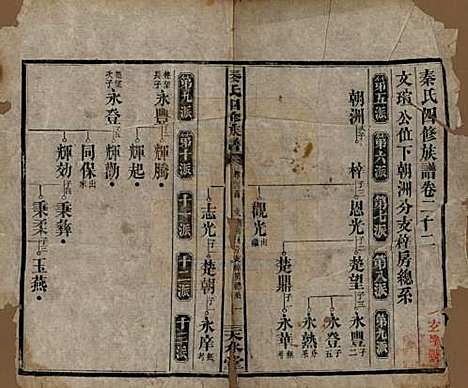 秦氏四修族譜卷二十二
文瑄公位下朝洲分支梓房總系
第五派
第六派
第七派
第八派
第九派
朝洲
梓
恩光
楚望
永豐
永登
永熟
永華
觀光
楚鼎
志光
楚朝
永岸
秦氏四修族譜
第九派
第十派
十一派
十二派
十三派
楚望長子
永豐
輝騰
輝起
楚望次子
永登
輝勳
同保
輝効
秉彝
秉柔
玉燕